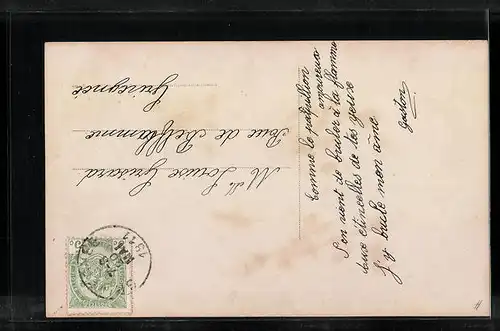 Comme le papillion
amoureux
S'on vient de bruler à la flamme
aux étincelles de tes yeux
J'y brule mon âme
Gaston
Mlle Louise Grisard
Rue de Bellaflamme
Grivegnée
1911